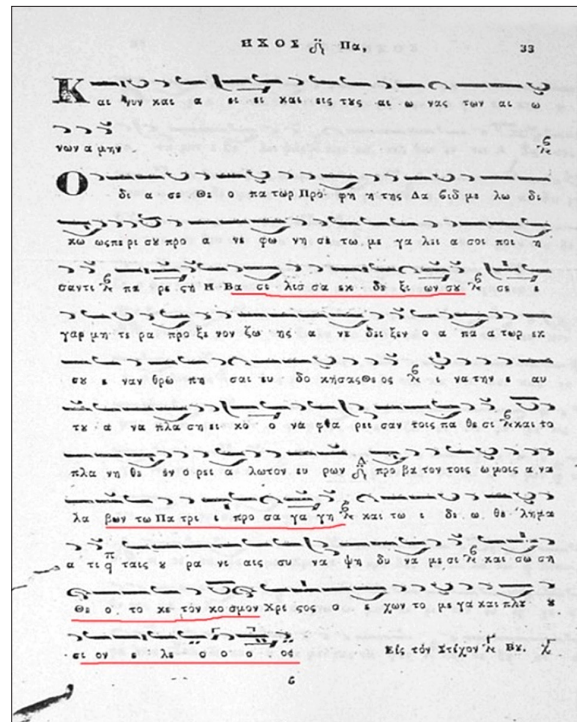 ΗΧΟΣ Πα, 33
Και νυν και α ει ει και εις τυς αι ω νας των αι ω
νων α μην
Ο δι α σε Θε ο πα τωρ Προ φη τη της Δα βιδ με λω δι
κω ως περι συ προ α νε φω νη σε τω με γα λει α σοι ποι η
σαντι πα ρε ςη Η Βα σι λισ σα εκ δε ξι ων συ σε ε
γαρ μη τε ρα προ ξε νον ζω ης α νε δει ξεν ο α πα τωρ εκ
συ ε ναν θρω πη σαι ευ δο κησας Θεος ι να την ε αυ
τυ α να πλα ση ει κο ο να φθα ρει σαν τοις πα θε σι και το
πλα νη θε εν ο ρει α λωτον ευ ρων προ βα τον τοις ω μοις α να
λα βων τω Πα τρι ι προ σα γα γη και τω ι δι ω θε λημα
α τι ταις υ ρα νι αις συ να ψη δυ να με σι και σω ση
Θε ο το κε τον κο σμον Χρι ςος ε χων το με γα και πλυ υ
σι ον ε λε ο ο ο ος Εις τον Στιχον Βυ.